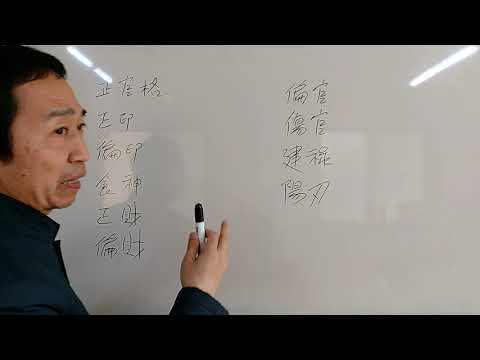 正官格
正印
偏印
食神
正財
偏財
偏官
傷官
建祿
陽刃